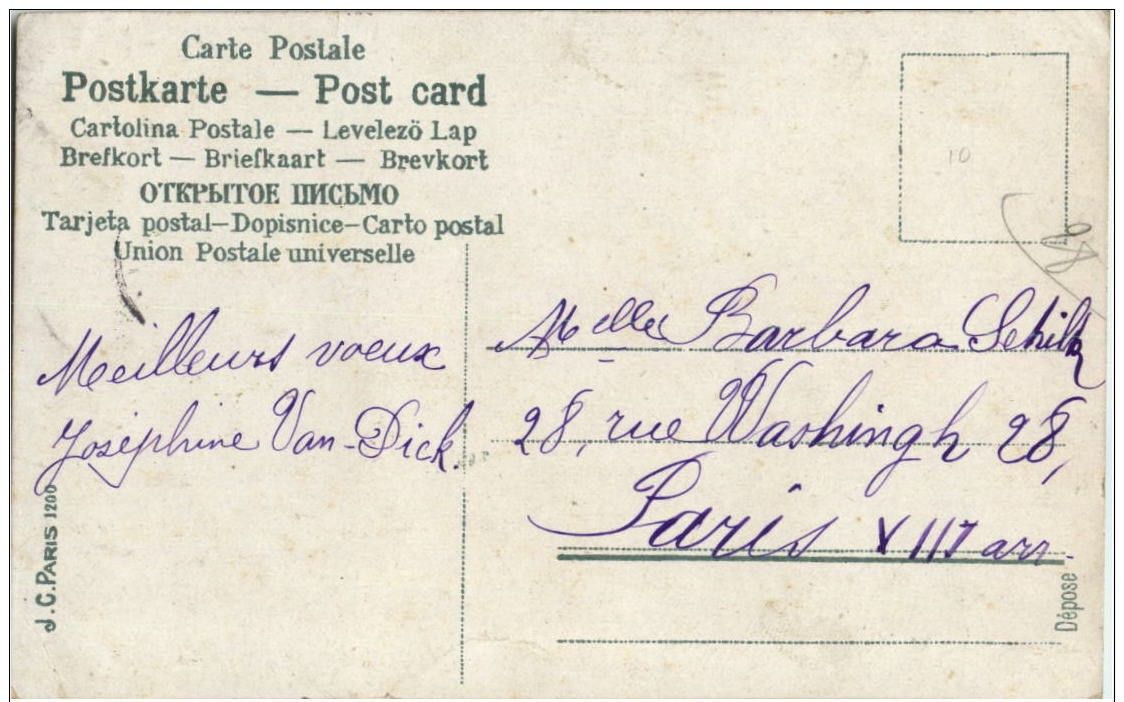 Carte Postale
Postkarte — Post card
Cartolina Postale — Levelezö Lap
Brefkort — Briefkaart — Brevkort
ОТКРЫТОЕ ПИСЬМО
Tarjeta postal—Dopisnice—Carto postal
Union Postale universelle
10
Meilleurs voeux
Joséphine Van-Dick.
Melle Barbara
28, rue Washingh 28,
Paris VIII arr.
J.C. PARIS 1200
Dépose